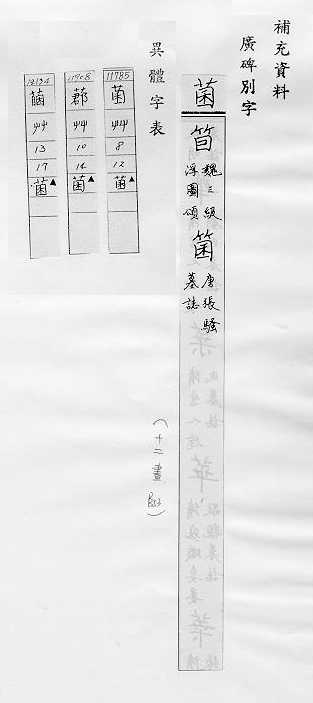 補充資料
廣碑別字
菌
䇹 魏三級浮圖頌
箘 唐張騷墓誌
(十二畫
異體字表
11785
菌
艸
8
12
菌▲
11908
艸
10
14
菌▲
艸
13
17
菌▲